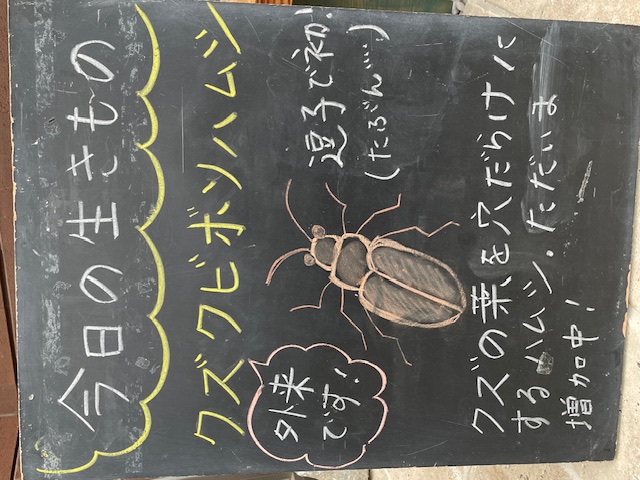 今日の生きもの
クズクビボソハムシ
逗子で初!
(たぶん…)
外来
です!
クズの葉を穴だらけに
するハムシ・ただいま
増加中!